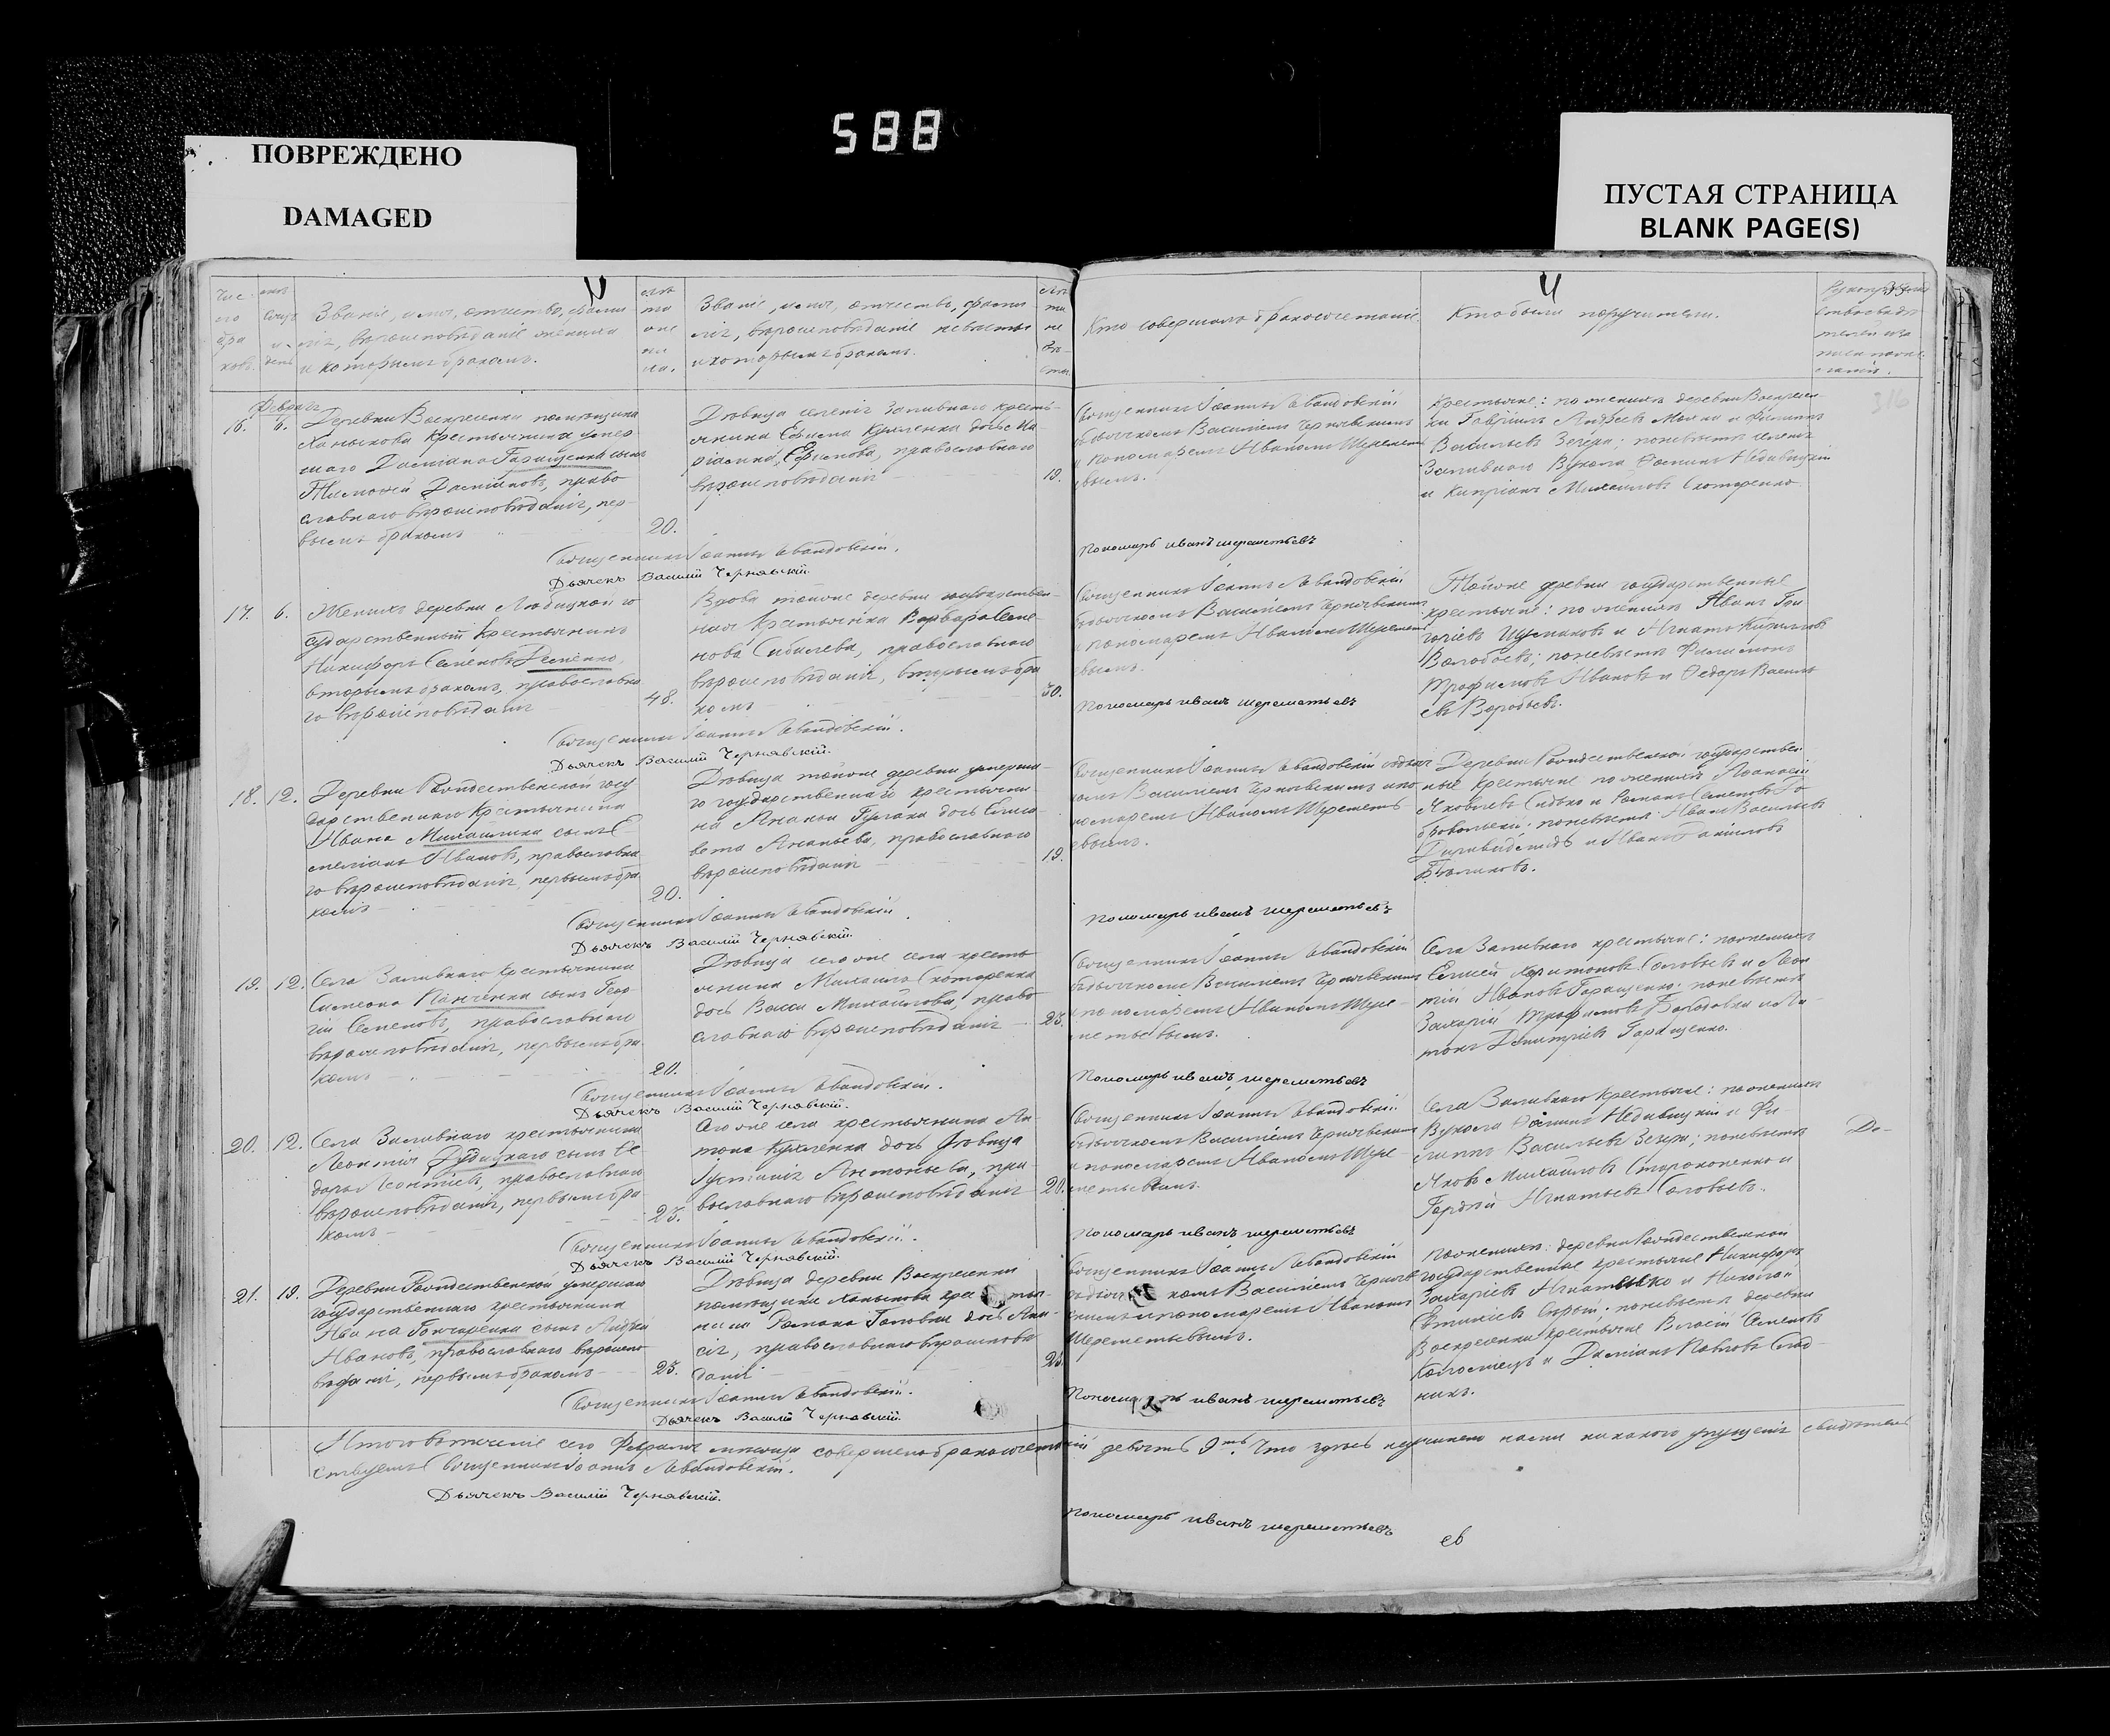 588
ПОВРЕЖДЕНО
DAMAGED
ПУСТАЯ СТРАНИЦА
BLANK PAGE(S)
Званіе, имя, отчество, фами
лія, вѣроисповѣданіе жениха
и которымъ бракомъ.
Званіе, имя, отчество, фами
лія, вѣроисповѣданіе невѣсты
и которымъ бракомъ.
Кто совершалъ бракосочетаніе.
Кто были поручители.
Февраль
16. 6. Деревни Воскресенки помѣщика
Ханыкова крестьянина умер
шаго Даміана Геращенка сынъ
Тимофей Даміановъ, право
славнаго вѣроисповѣданія, пер-
вымъ бракомъ
20.
Дѣвица селенія Заливнаго кресть-
янина Ефима Кухленка дочь Ма-
ріамна Ефимова, православнаго
вѣроисповѣданія
19.
Священникъ Іоаннъ Левандовскій
съ дьячкомъ Василіемъ Чернявскимъ
и пономаремъ Иваномъ Шереметь
евымъ.
Крестьяне: по женихѣ деревни Воскресен
ки Гавріилъ Андреевъ и Филиппъ
Васильевъ Зезеря; по невѣстѣ селенія
Заливнаго Вукола Ѳоминъ Недавицкій
и Кипріанъ Михайловъ Скотаренко
Священникъ Іоаннъ Левандовскій.
Дьячекъ Василій Чернявскій.
Пономарь иванъ шереметьевъ
17. 6. Женихъ деревни Людицкой го
сударственный крестьянинъ
Никифоръ Семеновъ Деменко,
вторымъ бракомъ, православна
го вѣроисповѣданія
48.
Вдова тойже деревни государствен-
ная крестьянка Варвара Семе-
нова Сибилева, православнаго
вѣроисповѣданія, вторымъ бра
комъ
30.
Священникъ Іоаннъ Левандовскій
съ дьячкомъ Василіемъ Чернявскимъ
и пономаремъ Иваномъ Шереметь
евымъ.
Тойже деревни государственные
крестьяне: по женихѣ Иванъ Гри
горіевъ Шумаковъ и Игнатъ Кириловъ
Воробьевъ; по невѣстѣ Филимонъ
Трофимовъ Ивановъ и Ѳедоръ Василь
евъ Воробьевъ.
Священникъ Іоаннъ Левандовскій.
Дьячекъ Василій Чернявскій.
Пономарь иванъ шереметьевъ
18. 12. Деревни Рождественской госу
дарственнаго крестьянина
Ивана Михайлика сынъ Е
меліанъ Ивановъ, православна
го вѣроисповѣданія, первымъ бра
комъ
20.
Дѣвица тойже деревни умерша
го государственнаго крестьяни
на Ананіи Гулака дочь Елиса
вета Ананьева, православнаго
вѣроисповѣданія
19.
Священникъ Іоаннъ Левандовскій съ дьяч
комъ Василіемъ Чернявскимъ и по
номаремъ Иваномъ Шереметь
евымъ.
Деревни Рождественской государствен
ные крестьяне: по женихѣ Аѳанасій
Яковлевъ Сидько и Романъ Семеновъ До
бровольскій; по невѣстѣ Иванъ Васильевъ
и Иванъ Даніиловъ
Бѣликовъ.
Священникъ Іоаннъ Левандовскій.
Дьячекъ Василій Чернявскій.
Пономарь иванъ шереметьевъ
19. 12. Села Заливнаго крестьянина
Симеона Панченка сынъ Геор
гій Семеновъ, православнаго
вѣроисповѣданія, первымъ бра
комъ
20.
Дѣвица сегоже села кресть
янина Михаила Скотаренка
дочь Васса Михайлова, право
славнаго вѣроисповѣданія
23.
Священникъ Іоаннъ Левандовскій
съ дьячкомъ Василіемъ Чернявскимъ
и пономаремъ Иваномъ Шере-
метьевымъ.
Села Заливнаго крестьяне: по женихѣ
Елисей Харитоновъ Соловьевъ и Леон
тій Ивановъ Геращенко; по невѣстѣ
Захарій Трофимовъ и Пла-
тонъ Димитріевъ Геращенко.
Священникъ Іоаннъ Левандовскій.
Дьячекъ Василій Чернявскій.
Пономарь иванъ шереметьевъ
20. 12. Села Заливнаго крестьянина
Леонтія Дудицкаго сынъ Ѳе
доръ Леонтіевъ, православнаго
вѣроисповѣданія, первымъ бра
комъ
23.
Сегоже села крестьянина Ан
тона Кухленка дочь дѣвица
Іустинія Антоньева, пра
вославнаго вѣроисповѣданія
20.
Священникъ Іоаннъ Левандовскій
съ дьячкомъ Василіемъ Чернявскимъ
и пономаремъ Иваномъ Шере
метьевымъ.
Села Заливнаго крестьяне: по женихѣ
Вукола Ѳоминъ Недавицкій и Фи
липпъ Васильевъ Зезеря; по невѣстѣ
Яковъ Михайловъ Старокоженко и
Гордѣй Игнатьевъ Соловьевъ.
Священникъ Іоаннъ Левандовскій.
Дьячекъ Василій Чернявскій.
Пономарь иванъ шереметьевъ
21. 19. Деревни Рождественской умершаго
государственнаго крестьянина
Ивана Гончаренка сынъ Андрей
Ивановъ, православнаго вѣроиспо
вѣданія, первымъ бракомъ
23.
Дѣвица деревни Воскресенки
помѣщика Ханыкова крестья
нина Романа Головки дочь Ана
сія, православнаго вѣроисповѣ
данія
Священникъ Іоаннъ Левандовскій
съ дьячкомъ Василіемъ Черняв
скимъ и пономаремъ Иваномъ
Шереметьевымъ.
По женихѣ: деревни Рождественской
государственные крестьяне Никифоръ
Захаріевъ Игнатенко и Николай
Евтихіевъ Сѣрый; по невѣстѣ деревни
Воскресенки крестьяне Власій Семеновъ
Коломіецъ и Даміанъ Павловъ Слад-
кихъ.
Священникъ Іоаннъ Левандовскій.
Дьячекъ Василій Чернявскій.
Пономарь иванъ шереметьевъ
Итого въ теченіе сего Февраля мѣсяца совершено бракосочетаній девять 9ть. Что здѣсь неучинено нами никакого упущенія свидѣтель
ствуемъ Священникъ Іоаннъ Левандовскій.
Дьячекъ Василій Чернявскій.
Пономарь иванъ шереметьевъ